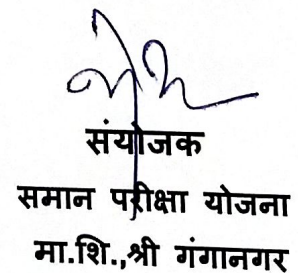 संयोजक
समान परीक्षा योजना
मा.शि.,श्री गंगानगर